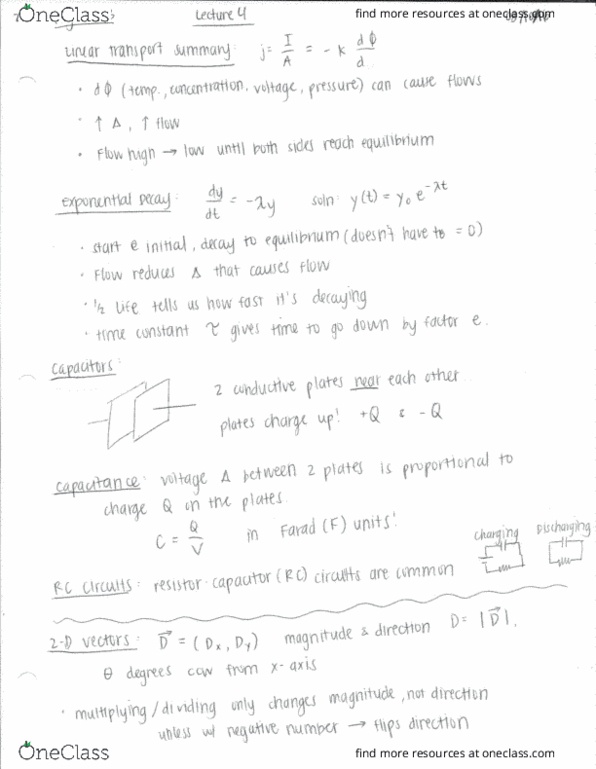 OneClass
Lecture 4
find more resources at oneclass.com
Linear transport summary: j = I/A = -k dϕ/d
• dϕ (temp., concentration, voltage, pressure) can cause flows
• ↑ Δ, ↑ flow
• Flow high → low until both sides reach equilibrium
Exponential Decay: dy/dt = -λy soln: y(t) = y₀ e^-λt
• start @ initial, decay to equilibrium (doesn't have to = 0)
• Flow reduces Δ that causes flow
• ½ life tells us how fast it's decaying
• time constant τ gives time to go down by factor e.
Capacitors:
2 conductive plates near each other
plates charge up! +Q & -Q
Capacitance: voltage Δ between 2 plates is proportional to
charge Q on the plates.
C = Q/V in Farad (F) units!
Charging
Discharging
RC Circuits: resistor-capacitor (RC) circuits are common
2-D vectors: D⃗ = (Dx, Dy) magnitude & direction D = |D⃗|.
θ degrees ccw from x-axis
• multiplying/dividing only changes magnitude, not direction
unless w/ negative number → flips direction
OneClass
find more resources at oneclass.com